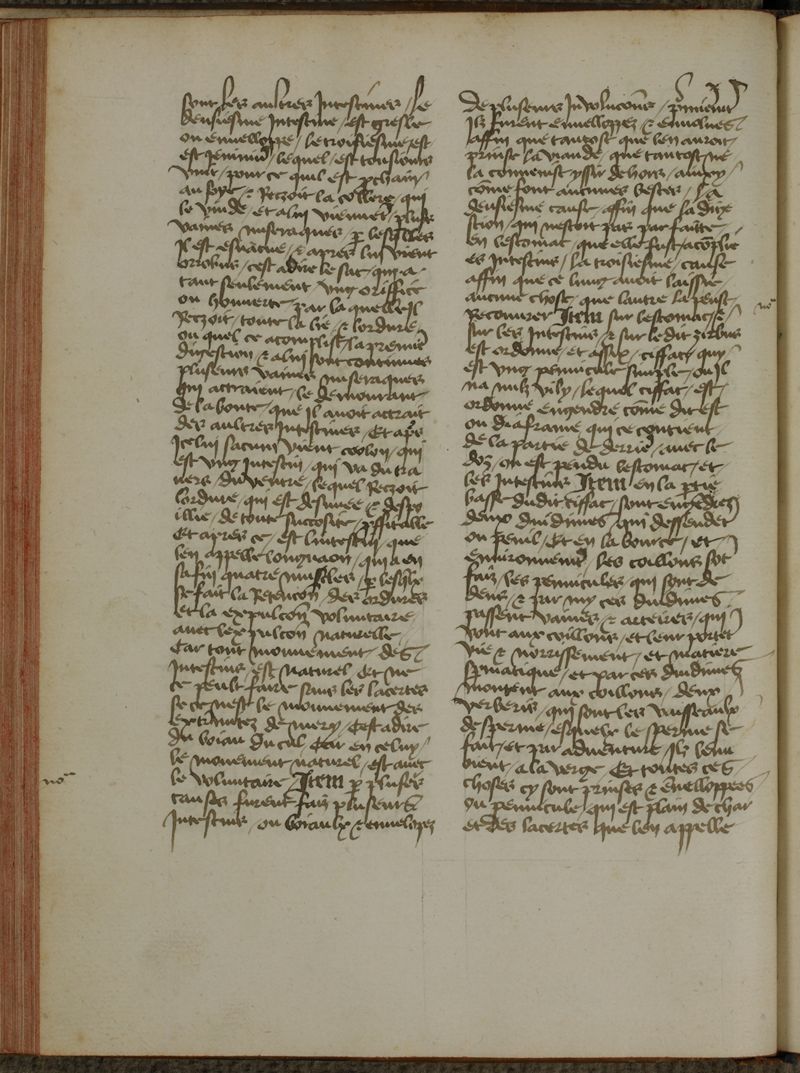 sont les aultres Intestines / le
deusiesme Intestine / est gresle
ou enuelloppe / le troisiesme / est
est Jeiunuz / lequel / est tousiours
vuit / pour ce quil est ꝓchain
au foye / ⁊ Reczoit la collere / qui
le vuide / et a lui viennent / plus̄rs
vaines miseraques / ꝑ lesq̄lles
Il est esuacue / ⁊ apres lui vient
orobus / cest adire le sac / qui a
tant seulement vng oriffice
ou honuerte / par la quelle Il
Reczoit / toute la lie / ⁊ lordure
ou quel ce acomplist / la premiē
digestion / ⁊ a lui sont continues
plusieurs vaines miseraques
qui attraient / le demourant
de la bonte / que il auoit attrait
des aultres Intestines / Et apꝭ
Icelui sacum vient coolon / qui
est vng Intestin / qui va du tra
uers / du ventre / lequel Reczoit
lordure / qui est desnuee / ⁊ despo
illie / de toute succosite / ꝓffitable
Et apres ce / est lintestin / que
len appelle longuaon / qui a en
sa fin quatre muscles / ꝑ lesq̄lx
se fait la Retencōn / des ordures
et la expulcōn voluntaire
auec lexpulcōn naturelle /
Car tout mouuement des
Intestins / est naturel / Et ne
ce peult faire sans les lacertes
se ce nest le mouuement des
extrimitez de mery / Cest adire
du boiau du cul / Car en celuy /
le mouement naturel / est auec
le voluntaire / Item ꝑ plus̄rs
causes furent faiz plusieurs
Intestins / ou boiaulx / ⁊ enuelopez
no
de plusieurs Inuolucōns / ꝓmiēmt
Ilz furent enuelloppez ⁊ enuolues
affin que tantost que len auroit
prinse la viande / que tantost ne
la conuenist yssir dehors / ainxy /
cōme font aucunes bestes / La
deusiesme cause / affin que la dige
stion / qui nestoit pas parfaitte
en lestomac / que elle fust acōplie
es Intestins / La troisiesme cause
affin que ce lung auoit laissie
aucune chose / que lautre la peust
Recouurer Item sur lestomac / ⁊
sur les Intestins / ⁊ sur le dit zirbus
est ordonne / et assix / ciffac / quy
est vng pennicule simple / ou il
na nulz vily / lequel ciffac / est
ordonne engendre cōme dit est
ou diaframe qui ce contient
de la partie de derrie / auec le
doz / ou est pendu lestomac / et
les Intestins Item en la ꝑtie
basse dudit ciffac / sont engēdrez
deux duidimes / qui dessendēt
ou penil / Et en la bource / et
enuironnent / les coillons sōt
faiz / les pennicules qui sont de
dens / ⁊ par my ces duidimes
passent vaines / ⁊ arteires / qui
vont aux coillons / et leur portēt
vie ⁊ norrissement / et matiere
spmatique / et par ces duidimes
montent aux coillons / deux
verberis / qui sont les vaisseaulx
de sperme / esquelx le sperme se
fait / et par aduenture / Ilz lenu
oient / a la verge / Et toutes ces
choses cy sont prinses ⁊ enelloppees
ou pennicule / qui est plain de char
et des lacertes que len appelle
no